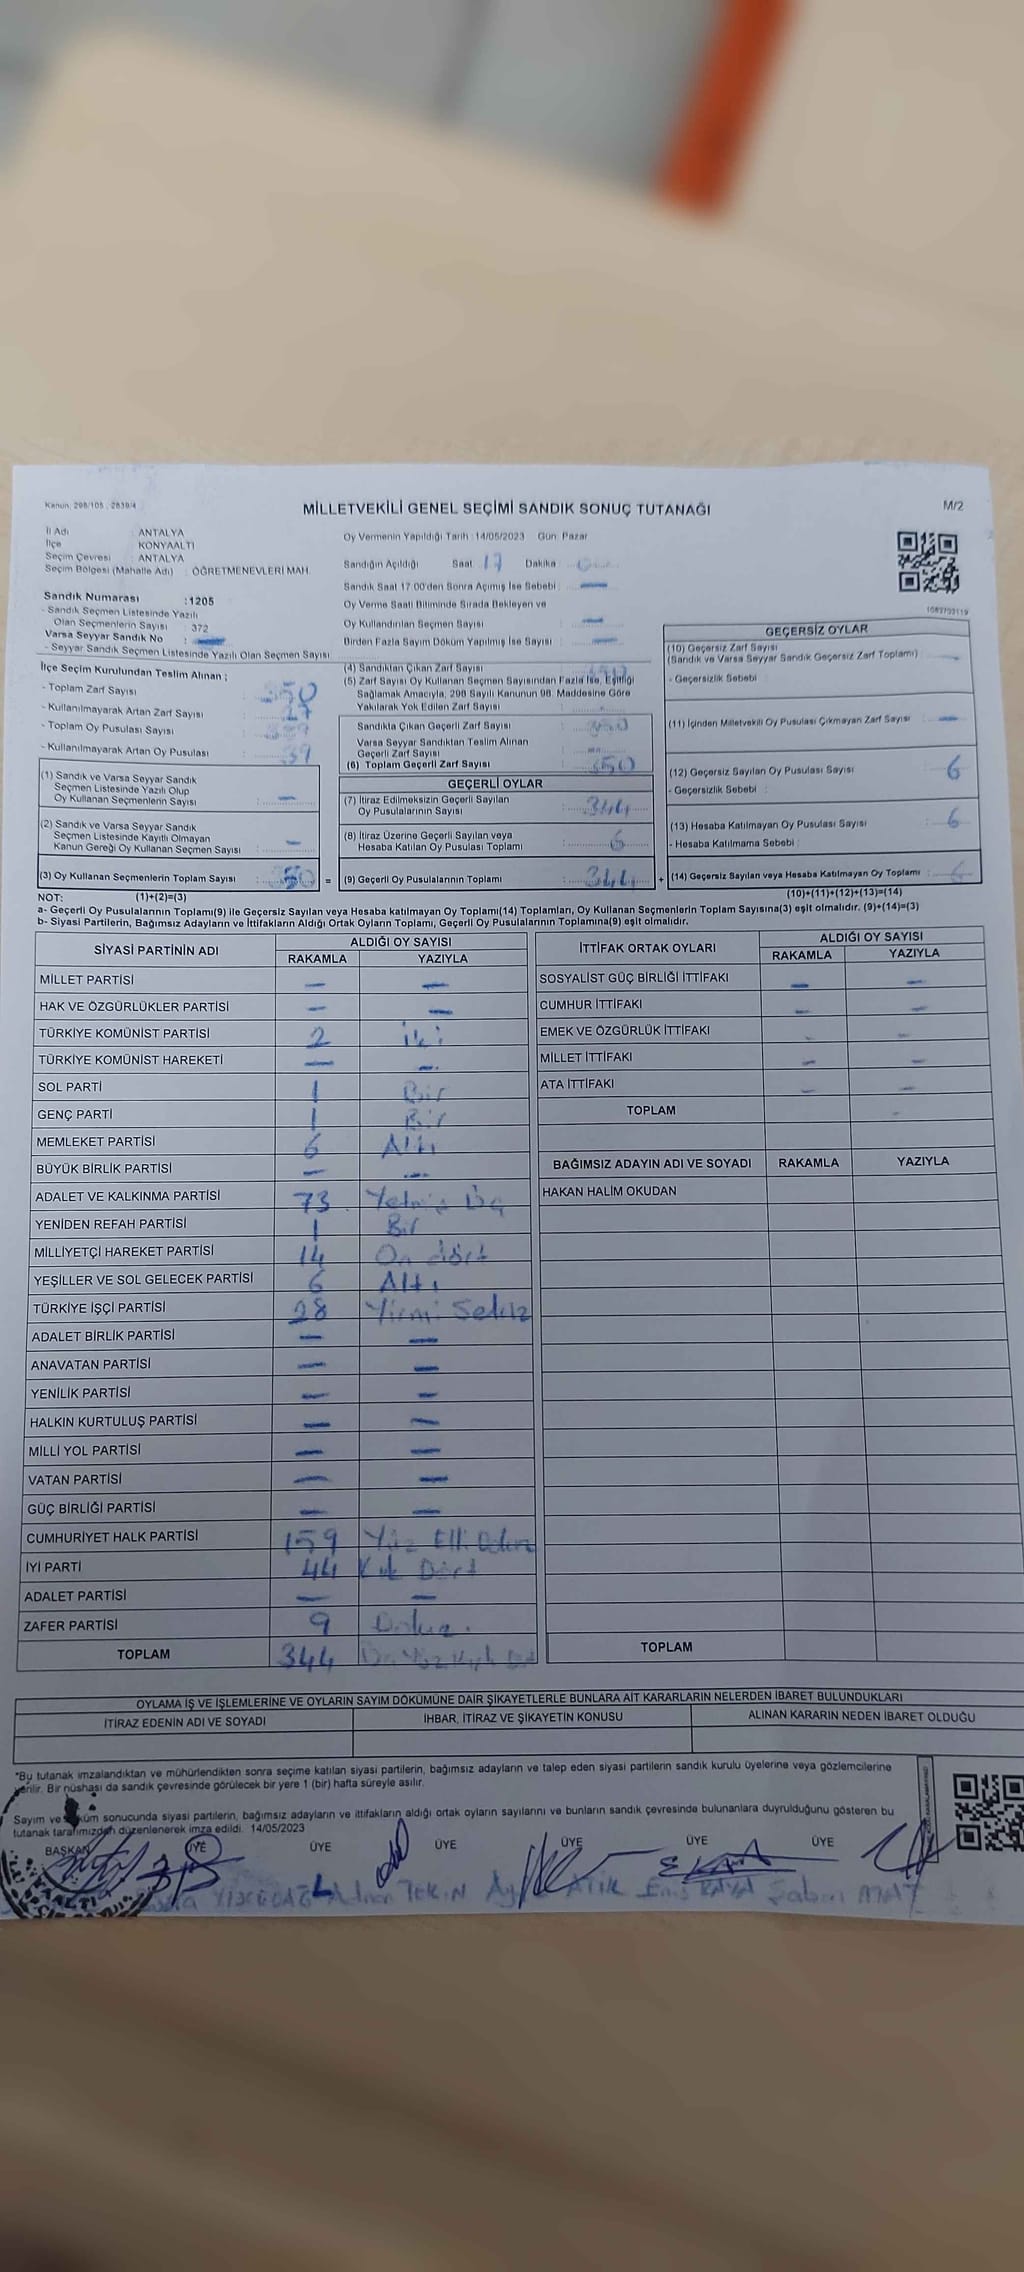 Kanun: 298/105 , 2839/4
MİLLETVEKİLİ GENEL SEÇİMİ SANDIK SONUÇ TUTANAĞI
M/2
İl Adı : ANTALYA
İlçe : KONYAALTI
Seçim Çevresi : ANTALYA
Seçim Bölgesi (Mahalle Adı) : ÖĞRETMENEVLERİ MAH.
Sandık Numarası :1205
- Sandık Seçmen Listesinde Yazılı
Olan Seçmenlerin Sayısı : 372
Varsa Seyyar Sandık No :
- Seyyar Sandık Seçmen Listesinde Yazılı Olan Seçmen Sayısı
Oy Vermenin Yapıldığı Tarih : 14/05/2023 Gün: Pazar
Sandığın Açıldığı Saat 17 Dakika
Sandık Saat 17:00'den Sonra Açımış İse Sebebi : —
Oy Verme Saati Bitiminde Sırada Bekleyen ve
Oy Kullandırılan Seçmen Sayısı : —
Birden Fazla Sayım Döküm Yapılmış İse Sayısı : —
1083703119
İlçe Seçim Kurulundan Teslim Alınan ;
- Toplam Zarf Sayısı :
- Kullanılmayarak Artan Zarf Sayısı :
- Toplam Oy Pusulası Sayısı :
- Kullanılmayarak Artan Oy Pusulası : 39
(1) Sandık ve Varsa Seyyar Sandık
Seçmen Listesinde Yazılı Olup
Oy Kullanan Seçmenlerin Sayısı : —
(2) Sandık ve Varsa Seyyar Sandık
Seçmen Listesinde Kayıtlı Olmayan
Kanun Gereği Oy Kullanan Seçmen Sayısı : —
(3) Oy Kullanan Seçmenlerin Toplam Sayısı : 350 =
(4) Sandıktan Çıkan Zarf Sayısı
(5) Zarf Sayısı Oy Kullanan Seçmen Sayısından Fazla İse, Eşitliği
Sağlamak Amacıyla, 298 Sayılı Kanunun 98. Maddesine Göre
Yakılarak Yok Edilen Zarf Sayısı :
Sandıkla Çıkan Geçerli Zarf Sayısı : 350
Varsa Seyyar Sandıktan Teslim Alınan
Geçerli Zarf Sayısı :
(6) Toplam Geçerli Zarf Sayısı : 350
GEÇERLİ OYLAR
(7) İtiraz Edilmeksizin Geçerli Sayılan
Oy Pusulalarının Sayısı : 344
(8) İtiraz Üzerine Geçerli Sayılan veya
Hesaba Katılan Oy Pusulası Toplamı : 6
(9) Geçerli Oy Pusulalarının Toplamı : 344 +
GEÇERSİZ OYLAR
(10) Geçersiz Zarf Sayısı
(Sandık ve Varsa Seyyar Sandık Geçersiz Zarf Toplamı) : —
- Geçersizlik Sebebi :
(11) İçinden Milletvekili Oy Pusulası Çıkmayan Zarf Sayısı : —
(12) Geçersiz Sayılan Oy Pusulası Sayısı : 6
- Geçersizlik Sebebi :
(13) Hesaba Katılmayan Oy Pusulası Sayısı : 6
- Hesaba Katılmama Sebebi :
(14) Geçersiz Sayılan veya Hesaba Katılmayan Oy Toplamı : 6
NOT: (1)+(2)=(3) (10)+(11)+(12)+(13)=(14)
a- Geçerli Oy Pusulalarının Toplamı(9) ile Geçersiz Sayılan veya Hesaba katılmayan Oy Toplamı(14) Toplamları, Oy Kullanan Seçmenlerin Toplam Sayısına(3) eşit olmalıdır. (9)+(14)=(3)
b- Siyasi Partilerin, Bağımsız Adayların ve İttifakların Aldığı Ortak Oyların Toplamı, Geçerli Oy Pusulalarının Toplamına(9) eşit olmalıdır.
SİYASİ PARTİNİN ADI ALDIĞI OY SAYISI
RAKAMLA YAZIYLA
MİLLET PARTİSİ — —
HAK VE ÖZGÜRLÜKLER PARTİSİ — —
TÜRKİYE KOMÜNİST PARTİSİ 2 iki
TÜRKİYE KOMÜNİST HAREKETİ — —
SOL PARTİ 1 Bir
GENÇ PARTİ 1 Bir
MEMLEKET PARTİSİ 6 Altı
BÜYÜK BİRLİK PARTİSİ — —
ADALET VE KALKINMA PARTİSİ 73 Yetmiş Üç
YENİDEN REFAH PARTİSİ 1 Bir
MİLLİYETÇİ HAREKET PARTİSİ 14 On dört
YEŞİLLER VE SOL GELECEK PARTİSİ 6 Altı
TÜRKİYE İŞÇİ PARTİSİ 28 Yirmi Sekiz
ADALET BİRLİK PARTİSİ — —
ANAVATAN PARTİSİ — —
YENİLİK PARTİSİ — —
HALKIN KURTULUŞ PARTİSİ — —
MİLLİ YOL PARTİSİ — —
VATAN PARTİSİ — —
GÜÇ BİRLİĞİ PARTİSİ — —
CUMHURİYET HALK PARTİSİ 159 Yüz Elli Dokuz
İYİ PARTİ 44 Kırk Dört
ADALET PARTİSİ — —
ZAFER PARTİSİ 9 Dokuz
TOPLAM 344
İTTİFAK ORTAK OYLARI ALDIĞI OY SAYISI
RAKAMLA YAZIYLA
SOSYALİST GÜÇ BİRLİĞİ İTTİFAKI — —
CUMHUR İTTİFAKI — —
EMEK VE ÖZGÜRLÜK İTTİFAKI — —
MİLLET İTTİFAKI — —
ATA İTTİFAKI — —
TOPLAM
BAĞIMSIZ ADAYIN ADI VE SOYADI RAKAMLA YAZIYLA
HAKAN HALİM OKUDAN
TOPLAM
OYLAMA İŞ VE İŞLEMLERİNE VE OYLARIN SAYIM DÖKÜMÜNE DAİR ŞİKAYETLERLE BUNLARA AİT KARARLARIN NELERDEN İBARET BULUNDUKLARI
İTİRAZ EDENİN ADI VE SOYADI İHBAR, İTİRAZ VE ŞİKAYETİN KONUSU ALINAN KARARIN NEDEN İBARET OLDUĞU
*Bu tutanak imzalandıktan ve mühürlendikten sonra seçime katılan siyasi partilerin, bağımsız adayların ve talep eden siyasi partilerin sandık kurulu üyelerine veya gözlemcilerine
verilir. Bir nüshası da sandık çevresinde görülecek bir yere 1 (bir) hafta süreyle asılır.
Sayım ve döküm sonucunda siyasi partilerin, bağımsız adayların ve ittifakların aldığı ortak oyların sayılarını ve bunların sandık çevresinde bulunanlara duyrulduğunu gösteren bu
tutanak tarafımızdan düzenlenerek imza edildi. 14/05/2023
BAŞKAN ÜYE ÜYE ÜYE ÜYE ÜYE ÜYE
TEKİN Enis KAYA Şaban